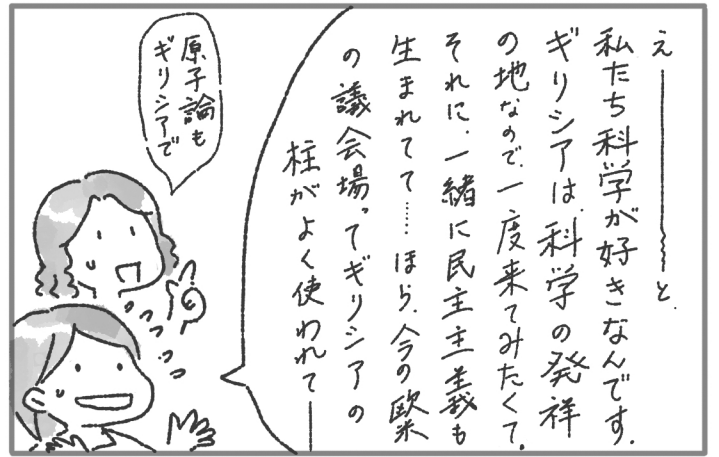 え――――と、
私たち科学が好きなんです。
ギリシアは、科学の発祥
の地なので、一度来てみたくて。
それに、一緒に民主主義も
生まれてて……ほら、今の欧米
の議会場ってギリシアの
柱がよく使われて――
原子論も
ギリシアで